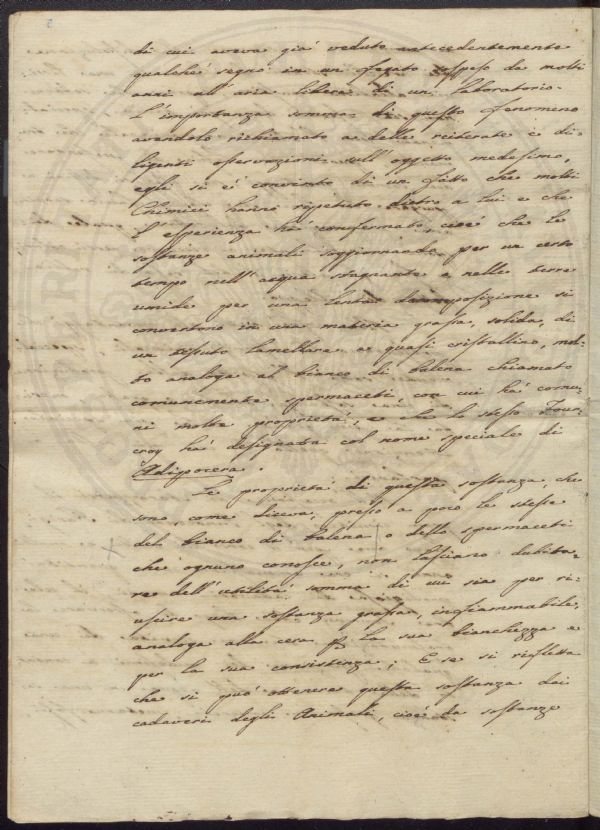 5
di cui aveva giá veduto antecedentemente
qualché segno in un fegato sospeso da molti
anni all'aria libera di un Laboratorio.
L'importanza somma di questo fenomeno
avendolo richiamato a delle reiterate e di:
ligenti osservazioni sull'oggetto medesimo,
egli si é convinto di un fatto che molti
Chimici hanno ripetuto dietro a lui e che
l'esperienza há confermato, cioé che le
sostanze animali soggiornando per un certo
tempo nell'acqua stagnante e nelle terre
umide per una lenta decomposizione si
convertono in una materia grassa, solida, di
un tessuto lamellare e quasi cristallino, mol:
to analoga al bianco di balena chiamato
comunemente spermaceti, con cui há comu:
ni molte proprietá, e che lo stesso Four:
croy há designata col nome speciale di
Adipocera.
Le proprietá di questa sostanza, che
sono, come diceva, presso a poco le stesse
del bianco di balena o dello spermaceti
che ognuno conosce, non lasciano dubita:
re dell'utilitá somma di cui sia per ri:
uscire una sostanza grassa, infiammabile,
analoga alla cera p la sua bianchezza e
per la sua consistenza; E se si rifletta
che si puó ottenere questa sostanza dai
cadaveri degli Animali, cioé da sostanze